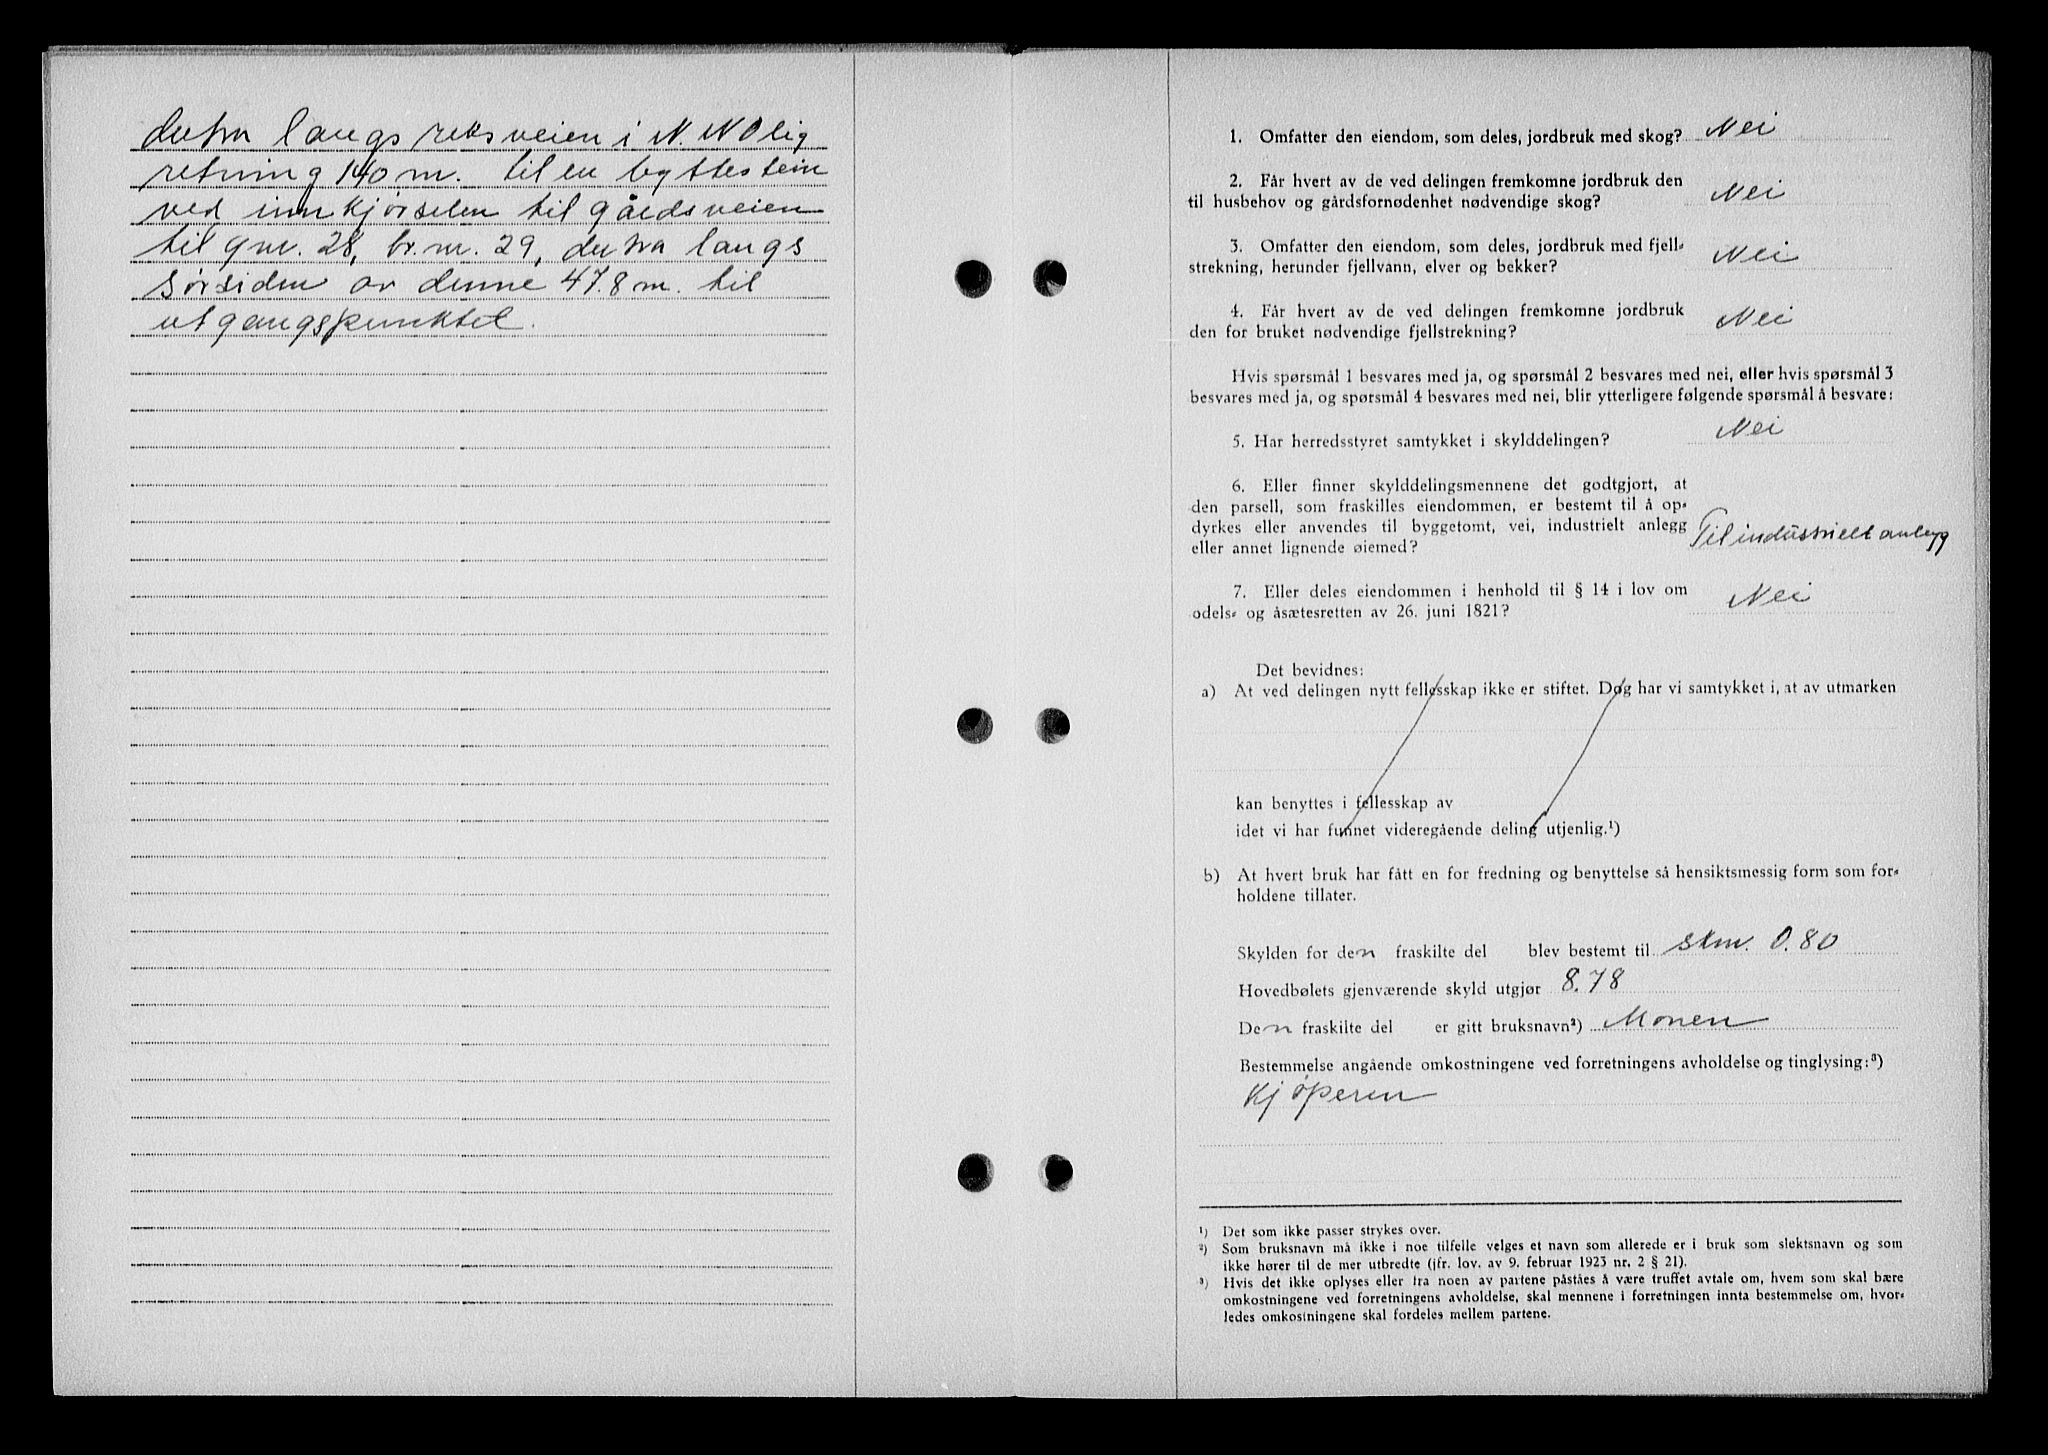 derfra langs riksveien i N. NOlig
retning 140 m. til en byttestein
ved innkjørselen til gårdsveien
til gnr. 28, br.nr. 29, derfra langs
sørsiden av denne 47.8 m. til
utgangspunktet.
1. Omfatter den eiendom, som deles, jordbruk med skog? Nei
2. Får hvert av de ved delingen fremkomne jordbruk den
til husbehov og gårdsfornødenhet nødvendige skog? Nei
3. Omfatter den eiendom, som deles, jordbruk med fjell-
strekning, herunder fjellvann, elver og bekker? Nei
4. Får hvert av de ved delingen fremkomne jordbruk
den for bruket nødvendige fjellstrekning? Nei
Hvis spørsmål 1 besvares med ja, og spørsmål 2 besvares med nei, eller hvis spørsmål 3
besvares med ja, og spørsmål 4 besvares med nei, blir ytterligere følgende spørsmål å besvare:
5. Har herredsstyret samtykket i skylddelingen? Nei
6. Eller finner skylddelingsmennene det godtgjort, at
den parsell, som fraskilles eiendommen, er bestemt til å op-
dyrkes eller anvendes til byggetomt, vei, industrielt anlegg
eller annet lignende øiemed? Til industrielt anlegg
7. Eller deles eiendommen i henhold til § 14 i lov om
odels- og åsætesretten av 26. juni 1821? Nei
Det bevidnes:
a) At ved delingen nytt fellesskap ikke er stiftet. Dog har vi samtykket i, at av utmarken
kan benyttes i fellesskap av
idet vi har funnet videregående deling utjenlig.¹)
b) At hvert bruk har fått en for fredning og benyttelse så hensiktsmessig form som for-
holdene tillater.
Skylden for den fraskilte del blev bestemt til skm. 0.80
Hovedbølets gjenværende skyld utgjør 8.78
Den fraskilte del er gitt bruksnavn²) Monen
Bestemmelse angående omkostningene ved forretningens avholdelse og tinglysing:³)
Kjøperen
¹) Det som ikke passer strykes over.
²) Som bruksnavn må ikke i noe tilfelle velges et navn som allerede er i bruk som slektsnavn og som
ikke hører til de mer utbredte (jfr. lov. av 9. februar 1923 nr. 2 § 21).
³) Hvis det ikke oplyses eller fra noen av partene påståes å være truffet avtale om, hvem som skal bære
omkostningene ved forretningens avholdelse, skal mennene i forretningen innta bestemmelse om, hvor-
ledes omkostningene skal fordeles mellem partene.